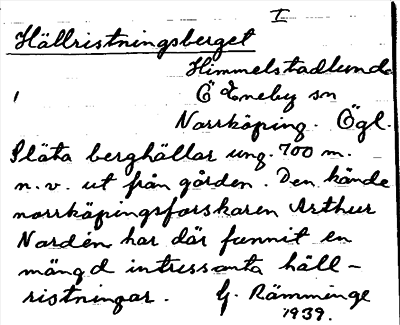 I
Hällristningsberget
Himmelstadlund
1 Ö Eneby sn
Norrköping. Ögl.
Släta berghällar ung. 700 m.
n.v. ut från gården. Den kände
norrköpingsforskaren Arthur
Nordén har där funnit en
mängd intressanta häll-
ristningar. G. Rämminge
1939.